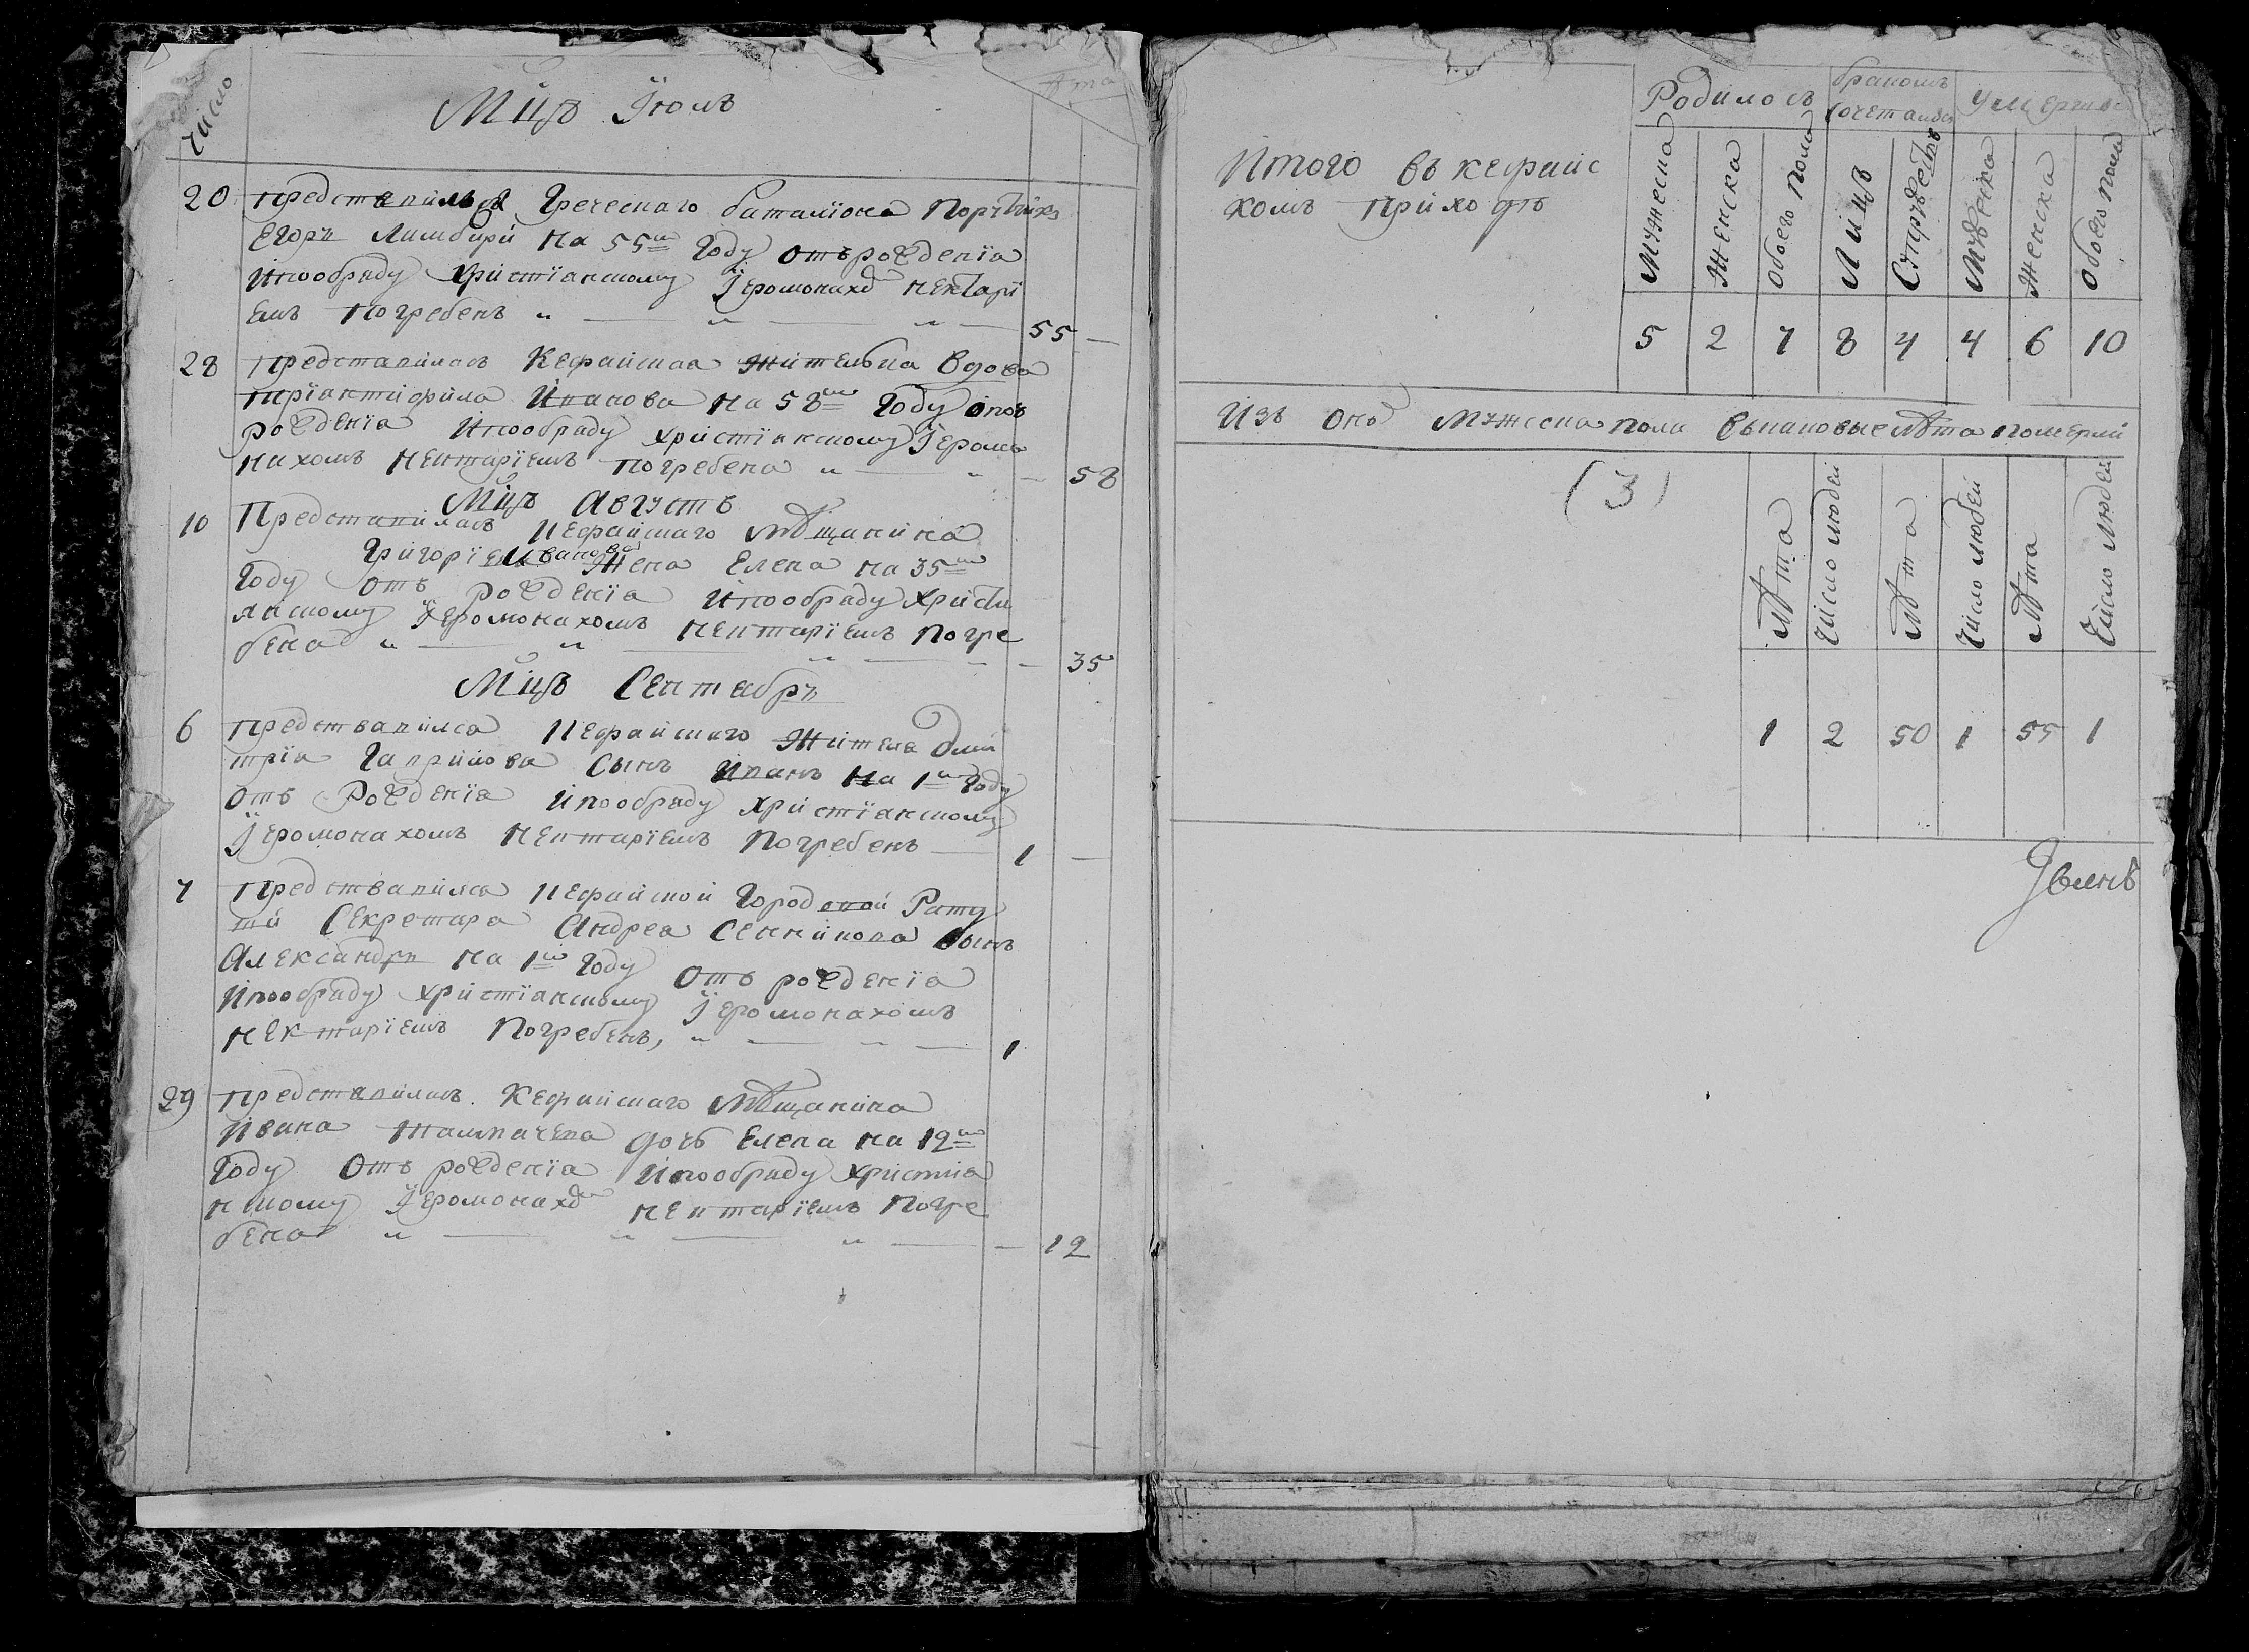 Число
Лѣта
Мцъ Іюль
20 представилься Греческаго баталiона Порутчикъ
Егоръ Лимбири на 55м Году отърожденїа
Ипообряду христїанскому Їеромонахом нектарї
емъ погребенъ 55
28 представилась Кефайская жителька вдова
Ивапова на 58м Году отъ
рожденїа Ипообряду христїанскому Їеромо
нахомъ нектарїемъ погребена 58
Мцъ Августъ
10 Представилась Кефайскаго мѣщанина
Григорїя Иванова Жена Елена на 35м
Году отъ рожденїа Ипообряду христи
янскому Їеромонахомъ нектарїемъ погре
бена 35
Мцъ Сентябръ
6 представился Кефайскаго Жителя дми
трїа Гаврилова Сынъ Иванъ на 1м Году
отъ рожденїя Ипообряду христїанскому
Їеромонахомъ нектарїемъ погребенъ 1
7 Представился Кефайской Городской Рату
ши Секретаря Андрея Сенникова сынъ
Александръ на 1м Году отъ рожденїа
Ипообряду христїанскому Їеромонахомъ
нектарїемъ погребенъ, 1
29 представилась Кефайскаго мѣщанина
Ивана дочь Елена на 12м
Году отъ рожденїа Ипообряду христиа
нскому Їеромонахом нектарїемъ погре
бена 12
Родилось бракомъ сочеталось умерших
Итого въ кефайс
комъ приходѣ
Мужеска Женска обоего пола Лицъ Супружествъ Мужеска Женска обоего пола
5 2 7 8 4 4 6 10
Изъ онъ Мужеска пола въ каковые лѣта померли
(3)
Лѣта Число людей Лѣта Число людей Лѣта Число людей
1 2 50 1 55 1